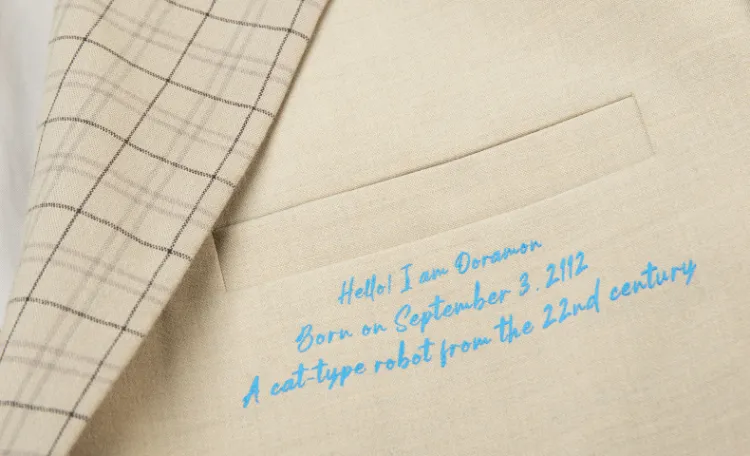 Hello! I am Doramon
Born on September 3, 2112
A cat-type robot from the 22nd century